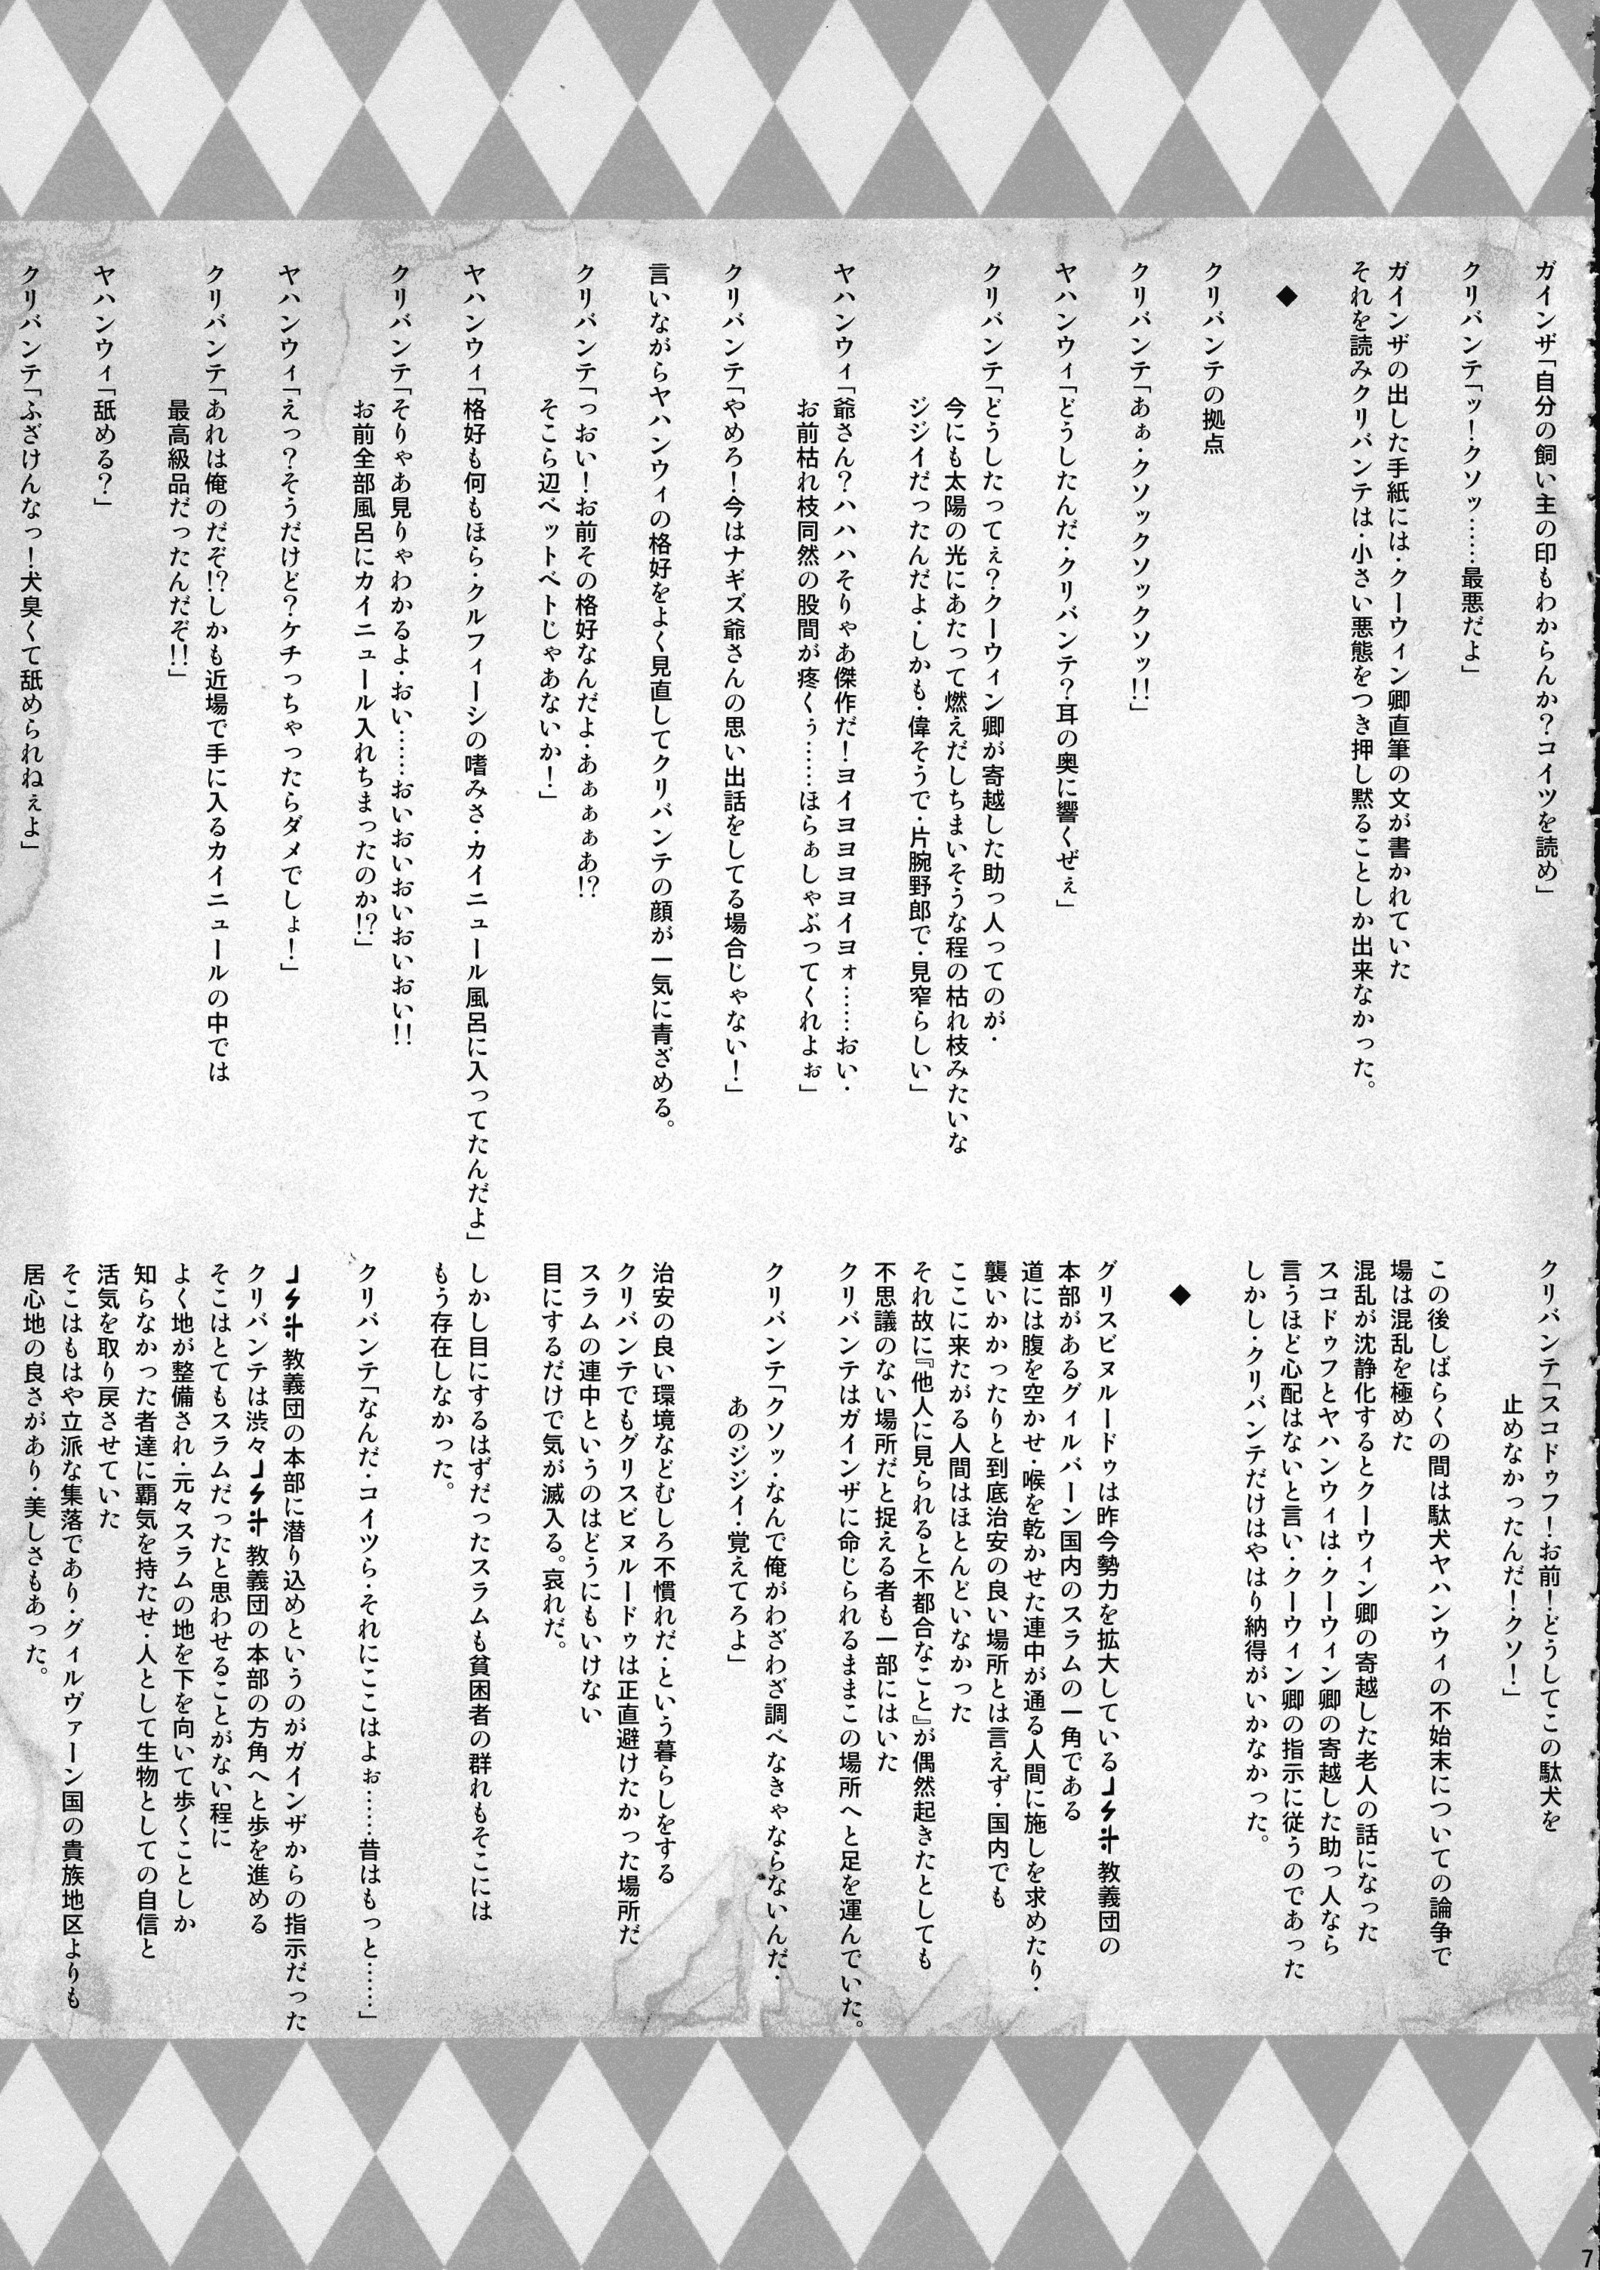 ガインザ「自分の飼い主の印もわからんか？コイツを読め」
クリバンテ「ッ！クソッ……最悪だよ」
ガインザの出した手紙には・クーウィン卿直筆の文が書かれていた
それを読みクリバンテは・小さい悪態をつき押し黙ることしか出来なかった。
◆
クリバンテの拠点
クリバンテ「あぁ・クソックソックソッ!!」
ヤハンウィ「どうしたんだ・クリバンテ？耳の奥に響くぜぇ」
クリバンテ「どうしたってぇ？クーウィン卿が寄越した助っ人ってのが・
今にも太陽の光にあたって燃えだしちまいそうな程の枯れ枝みたいな
ジジイだったんだよ・しかも・偉そうで・片腕野郎で・見窄らしい」
ヤハンウィ「爺さん？ハハハそりゃあ傑作だ！ヨイヨヨヨヨイヨォ……おい・
お前枯れ枝同然の股間が疼くぅ……ほらぁしゃぶってくれよぉ」
クリバンテ「やめろ！今はナギズ爺さんの思い出話をしてる場合じゃない！」
言いながらヤハンウィの格好をよく見直してクリバンテの顔が一気に青ざめる。
クリバンテ「っおい！お前その格好なんだよ・あぁぁぁあ!?
そこら辺ベットベトじゃあないか！」
ヤハンウィ「格好も何もほら・クルフィーシの嗜みさ・カイニュール風呂に入ってたんだよ」
クリバンテ「そりゃあ見りゃわかるよ・おい……おいおいおいおいおい!!
お前全部風呂にカイニュール入れちまったのか!?」
ヤハンウィ「えっ？そうだけど？ケチっちゃったらダメでしょ！」
クリバンテ「あれは俺のだぞ!?しかも近場で手に入るカイニュールの中では
最高級品だったんだぞ!!」
ヤハンウィ「舐める？」
クリバンテ「ふざけんなっ！犬臭くて舐められねぇよ」
クリバンテ「スコドゥフ！お前！どうしてこの駄犬を
止めなかったんだ！クソ！」
この後しばらくの間は駄犬ヤハンウィの不始末についての論争で
場は混乱を極めた
混乱が沈静化するとクーウィン卿の寄越した老人の話になった
スコドゥフとヤハンウィは・クーウィン卿の寄越した助っ人なら
言うほど心配はないと言い・クーウィン卿の指示に従うのであった
しかし・クリバンテだけはやはり納得がいかなかった。
◆
グリスビヌルードゥは昨今勢力を拡大している教義団の
本部があるグィルバーン国内のスラムの一角である
道には腹を空かせ・喉を乾かせた連中が通る人間に施しを求めたり・
襲いかかったりと到底治安の良い場所とは言えず・国内でも
ここに来たがる人間はほとんどいなかった
それ故に『他人に見られると不都合なこと』が偶然起きたとしても
不思議のない場所だと捉える者も一部にはいた
クリバンテはガインザに命じられるままこの場所へと足を運んでいた。
クリバンテ「クソッ・なんで俺がわざわざ調べなきゃならないんだ・
あのジジイ・覚えてろよ」
治安の良い環境などむしろ不慣れだ・という暮らしをする
クリバンテでもグリスビヌルードゥは正直避けたかった場所だ
スラムの連中というのはどうにもいけない
目にするだけで気が滅入る。哀れだ。
しかし目にするはずだったスラムも貧困者の群れもそこには
もう存在しなかった。
クリバンテ「なんだ・コイツら・それにここはよぉ……昔はもっと……」
教義団の本部に潜り込めというのがガインザからの指示だった
クリバンテは渋々教義団の本部の方角へと歩を進める
そこはとてもスラムだったと思わせることがない程に
よく地が整備され・元々スラムの地を下を向いて歩くことしか
知らなかった者達に覇気を持たせ・人として生物としての自信と
活気を取り戻させていた
そこはもはや立派な集落であり・グィルヴァーン国の貴族地区よりも
居心地の良さがあり・美しさもあった。
7